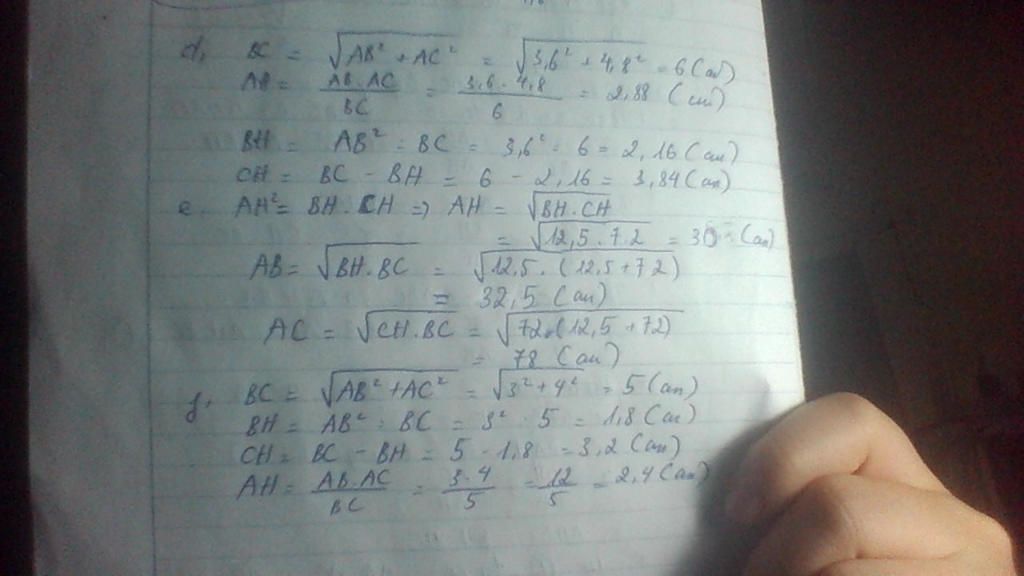 d, BC = √(AB² + AC²) = √(3,6² + 4,8²) = 6 (cm)
AH = AB.AC/BC = 3,6 . 4,8/6 = 2,88 (cm)
BH = AB² : BC = 3,6² : 6 = 2,16 (cm)
CH = BC - BH = 6 - 2,16 = 3,84 (cm)
e. AH² = BH . CH => AH = √(BH.CH)
= √(12,5 . 72) = 30 (cm)
AB = √(BH.BC) = √(12,5 . (12,5 + 72))
= 32,5 (cm)
AC = √(CH.BC) = √(72.(12,5 + 72))
= 78 (cm)
f, BC = √(AB² + AC²) = √(3² + 4²) = 5 (cm)
BH = AB² : BC = 3² : 5 = 1,8 (cm)
CH = BC - BH = 5 - 1,8 = 3,2 (cm)
AH = AB.AC/BC = 3.4/5 = 12/5 = 2,4 (cm)